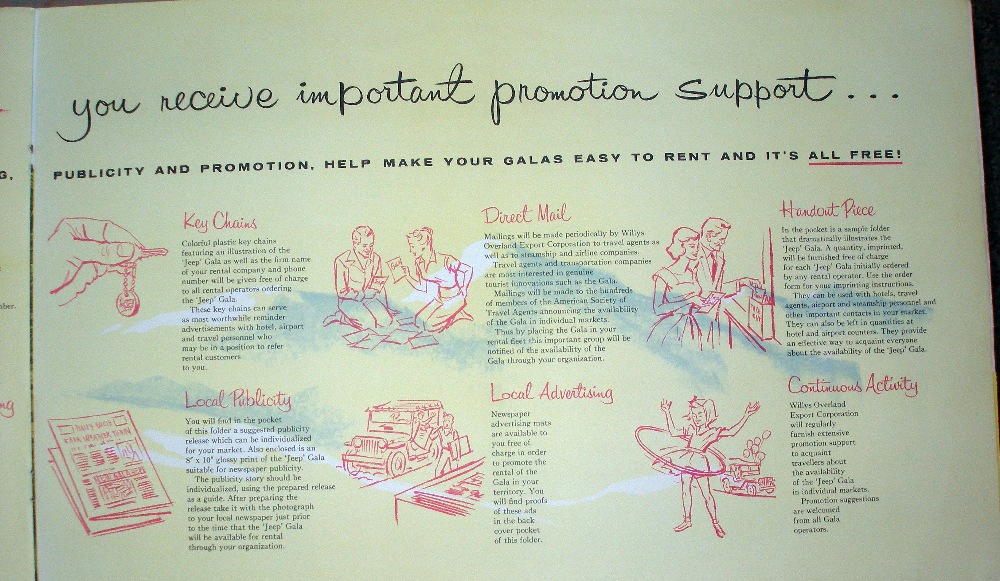 you receive important promotion support...
PUBLICITY AND PROMOTION, HELP MAKE YOUR GALAS EASY TO RENT AND IT'S ALL FREE!
Key Chains
Colorful plastic key chains
featuring an illustration of the
'Jeep' Gala as well as the firm name
of your rental company and phone
number will be given free of charge
to all rental operators ordering
the 'Jeep' Gala.
These key chains can serve
as most worthwhile reminder
advertisements with hotel, airport
and travel personnel who
may be in a position to refer
rental customers
to you.
Direct Mail
Mailings will be made periodically by Willys
Overland Export Corporation to travel agents as
well as to steamship and airline companies.
Travel agents and transportation companies
are most interested in genuine
tourist innovations such as the Gala.
Mailings will be made to the hundreds
of members of the American Society of
Travel Agents announcing the availability
of the Gala in individual markets.
Thus by placing the Gala in your
rental fleet this important group will be
notified of the availability of the
Gala through your organization.
Handout Piece
In the pocket is a sample folder
that dramatically illustrates the
'Jeep' Gala. A quantity, imprinted,
will be furnished free of charge
for each 'Jeep' Gala initially ordered
by any rental operator. Use the order
form for your imprinting instructions.
They can be used with hotels, travel
agents, airport and steamship personnel and
other important contacts in your market.
They can also be left in quantities at
hotel and airport counters. They provide
an effective way to acquaint everyone
about the availability of the 'Jeep' Gala.
Local Publicity
You will find in the pocket
of this folder a suggested publicity
release which can be individualized
for your market. Also enclosed is an
8" x 10" glossy print of the 'Jeep' Gala
suitable for newspaper publicity.
The publicity story should be
individualized, using the prepared release
as a guide. After preparing the
release take it with the photograph
to your local newspaper just prior
to the time that the 'Jeep' Gala
will be available for rental
through your organization.
Local Advertising
Newspaper
advertising mats
are available to
you free of
charge in order
to promote the
rental of the
Gala in your
territory. You
will find proofs
of these ads
in the back
cover pocket
of this folder.
Continuous Activity
Willys Overland
Export Corporation
will regularly
furnish extensive
promotion support
to acquaint
travellers about
the availability
of the 'Jeep' Gala
in individual markets.
Promotion suggestions
are welcomed
from all Gala
operators.